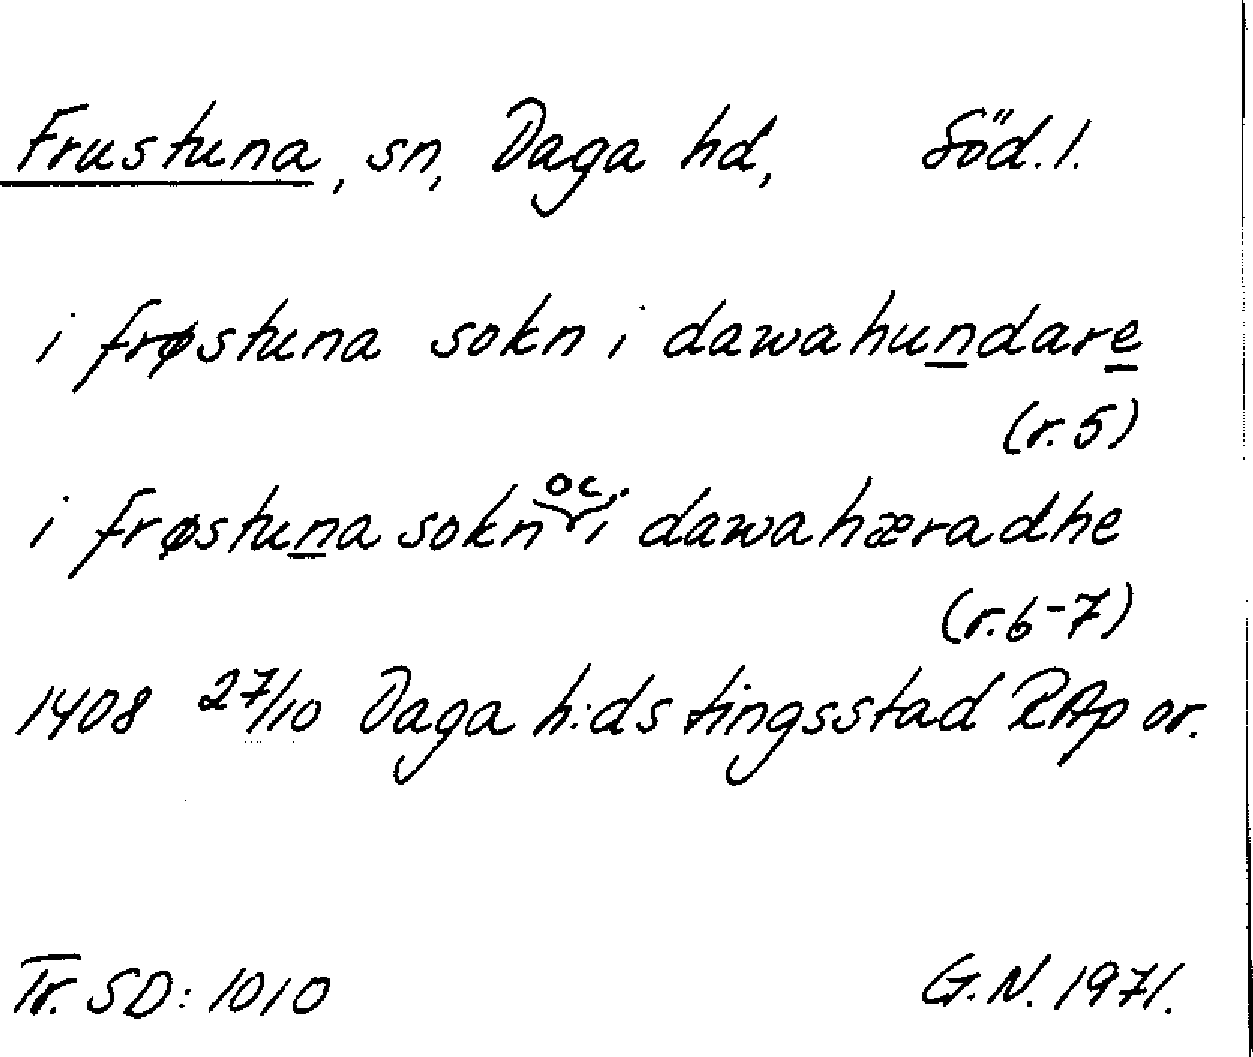 Frustuna, sn, Daga hd, Söd. l.
i frøstuna sokn i dawahundare
(r. 5)
i frøstuna sokn oc i dawahæradhe
(r. 6-7)
1408 27/10 Daga h:ds tingsstad RAp or.
Tr. SD: 1010 G.N. 1971.